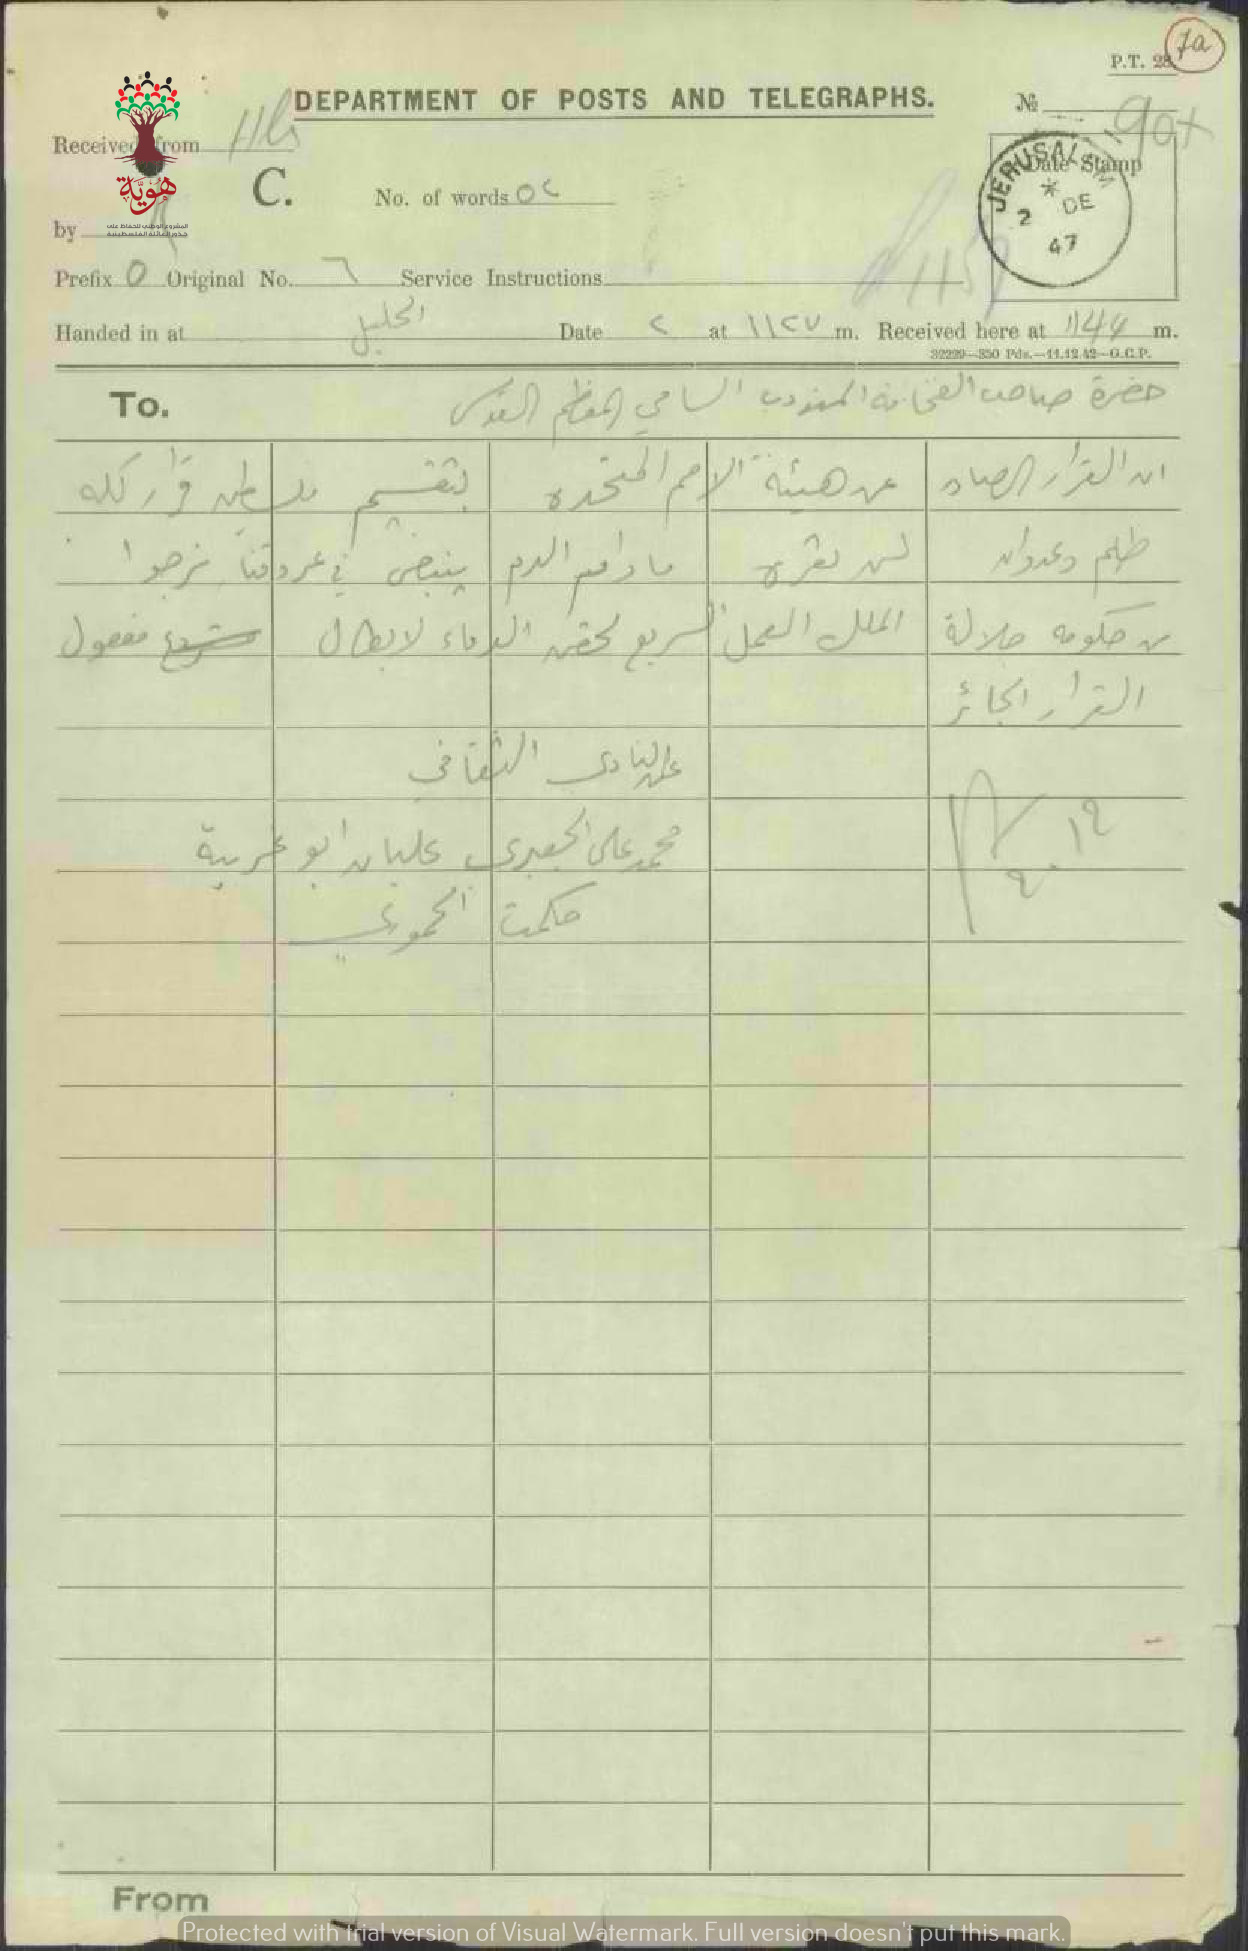 P.T. 28
7a
DEPARTMENT OF POSTS AND TELEGRAPHS.
№
Received from Hb
Date Stamp
JERUSALEM
2 DE
47
C.
No. of words ٥٢
هُوِيَّة
المشروع الوطني للحفاظ على
جذور العائلة الفلسطينية
by
Prefix O Original No. ٦ Service Instructions
Handed in at الخليل Date ٢ at ١١٢٧ m. Received here at 1144 m.
32229—350 Pds.—11.12.42—G.C.P.
To. حضرة صاحب الفخامة المندوب السامي المعظم القدس
ان القرار الصادر عن هيئة الامم المتحده بتقسيم فلسطين قرار كله
ظلم وعدوان لن نقره ما دام الدم ينبض في عروقنا نرجوا
من حكومة جلالة الملك العمل السريع لحقن الدماء لابطال مفعول
القرار الجائر
عن النادي الثقافي
محمد علي الجعبري عليان ابو غربية
حكمت الحموري
From
Protected with trial version of Visual Watermark. Full version doesn't put this mark.